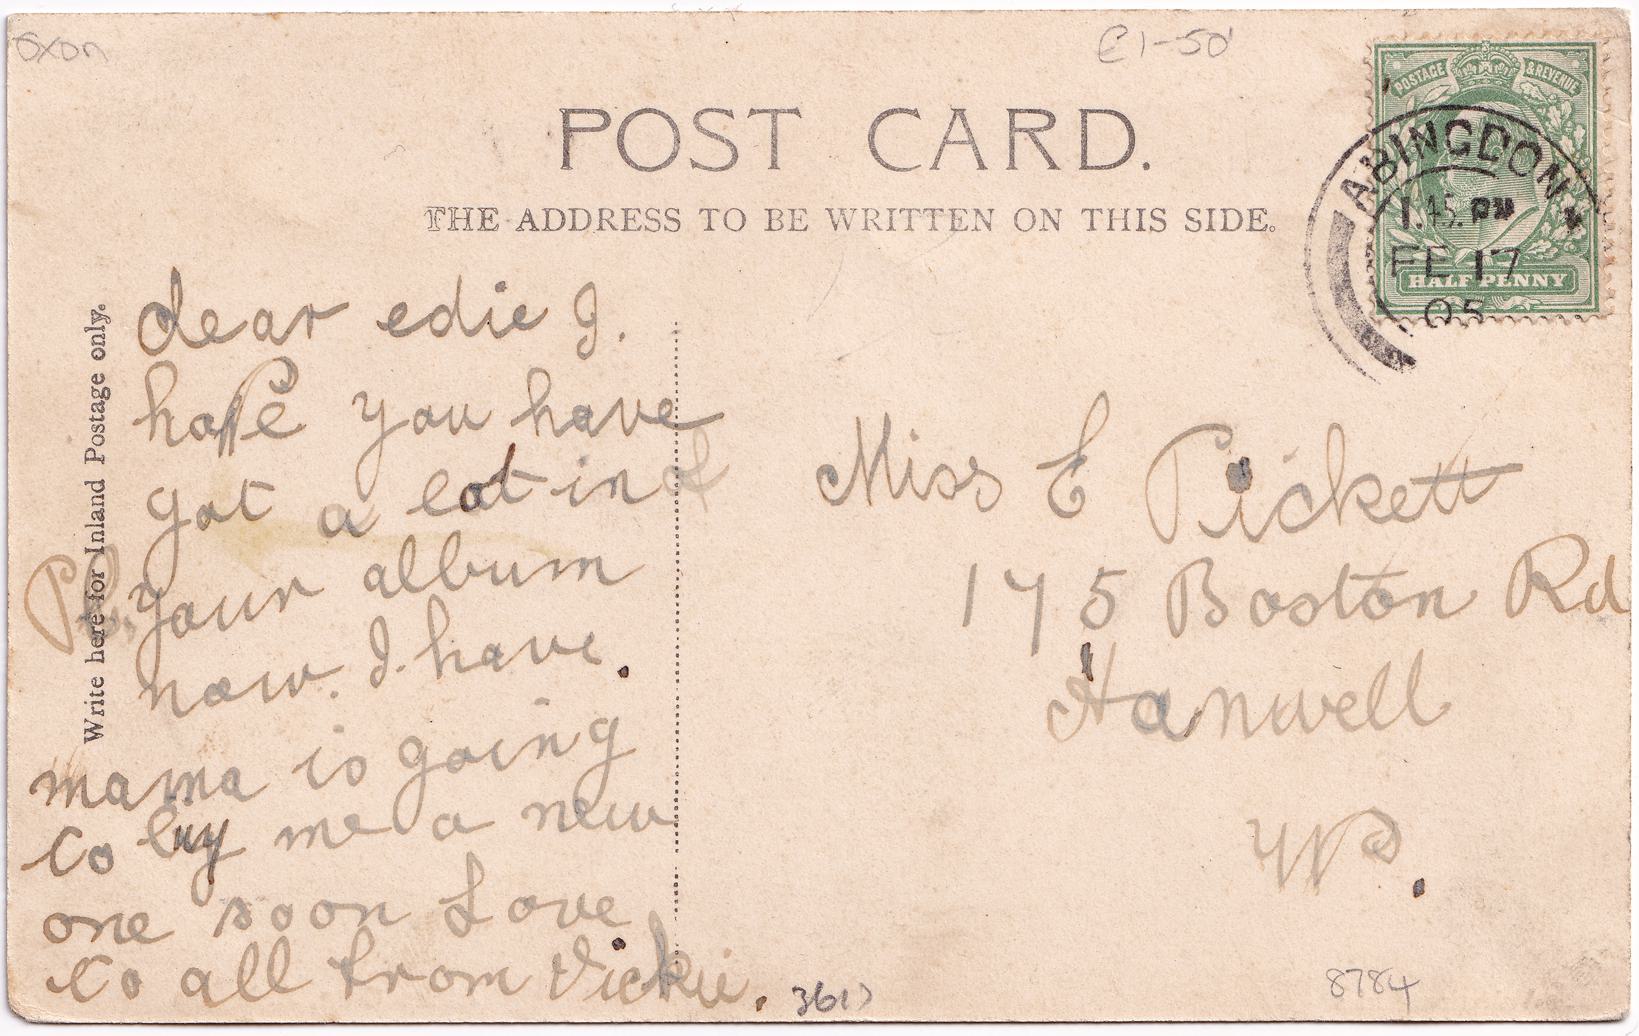 Oxon
£1-50
POST CARD.
THE ADDRESS TO BE WRITTEN ON THIS SIDE.
POSTAGE & REVENUE
HALFPENNY
ABINGDON
1.45. PM
FE 17
05
Write here for Inland Postage only.
dear edie I.
hope you have
got a lot in
your album
now. I. have.
mama is going
to buy me a new
one soon Love
to all from Vickie.
Miss E Pickett
175 Boston Rd
Hanwell
W.
8784